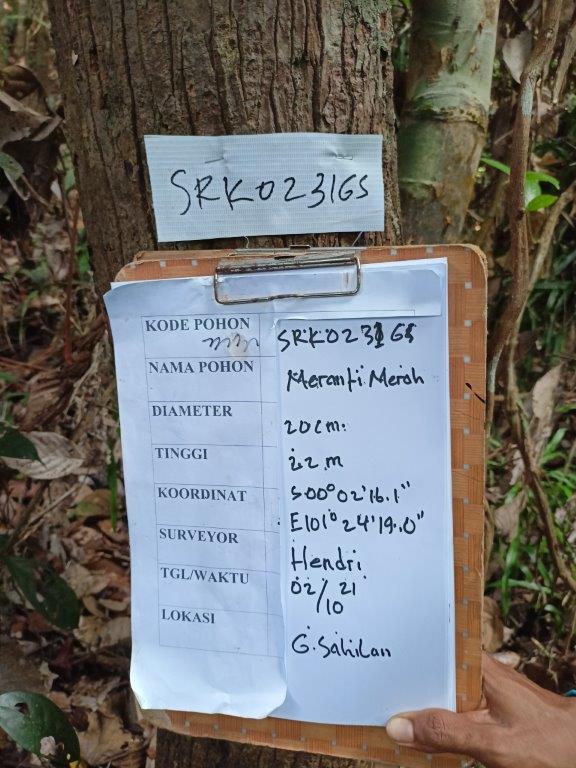 SRK0231GS
KODE POHON SRK0231GS
NAMA POHON Meranti Merah
DIAMETER 20 cm.
TINGGI 22 m
KOORDINAT S00°02'16.1"
E101°24'19.0"
SURVEYOR Hendri
TGL/WAKTU 02/10 21
LOKASI G. Sahilan